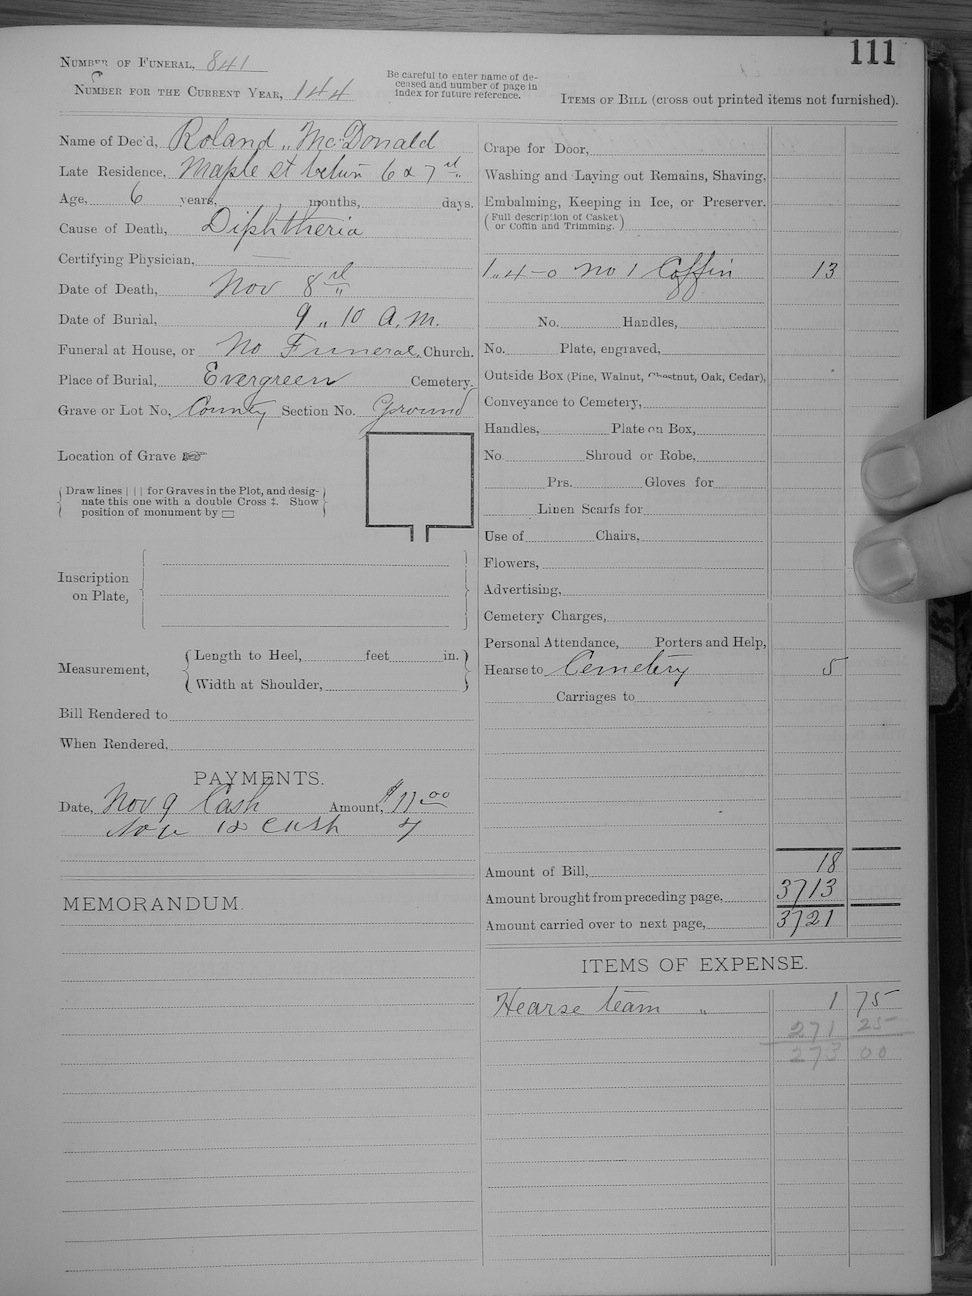 111
NUMBER OF FUNERAL, 841
NUMBER FOR THE CURRENT YEAR, 144
Be careful to enter name of de-
ceased and number of page in
index for future reference.
ITEMS OF BILL (cross out printed items not furnished).
Name of Dec'd, Roland McDonald
Late Residence, Maple St betwn 6 & 7
Age, 6 years, months, days.
Cause of Death, Diphtheria
Certifying Physician,
Date of Death, Nov 8
Date of Burial, 9 " 10 A.M.
Funeral at House, or No Funeral Church.
Place of Burial, Evergreen Cemetery.
Grave or Lot No. County Section No. Ground
Location of Grave ☞
Draw lines | | | for Graves in the Plot, and desig-
nate this one with a double Cross ‡. Show
position of monument by ▭
Inscription
on Plate,
Measurement,
Length to Heel, feet in.
Width at Shoulder,
Bill Rendered to
When Rendered,
PAYMENTS.
Date, Nov 9 Cash Amount, $11.00
Nov 12 Cash 7
MEMORANDUM.
Crape for Door,
Washing and Laying out Remains, Shaving,
Embalming, Keeping in Ice, or Preserver.
(Full description of Casket
or Coffin and Trimming.)
1 4-0 No 1 Coffin 13
No. Handles,
No. Plate, engraved,
Outside Box (Pine, Walnut, Chestnut, Oak, Cedar),
Conveyance to Cemetery,
Handles, Plate on Box,
No. Shroud or Robe,
Prs. Gloves for
Linen Scarfs for
Use of Chairs,
Flowers,
Advertising,
Cemetery Charges,
Personal Attendance, Porters and Help,
Hearse to Cemetery 5
Carriages to
Amount of Bill, 18
Amount brought from preceding page, 3713
Amount carried over to next page, 3721
ITEMS OF EXPENSE.
Hearse team " 1 75
271 25
273 00